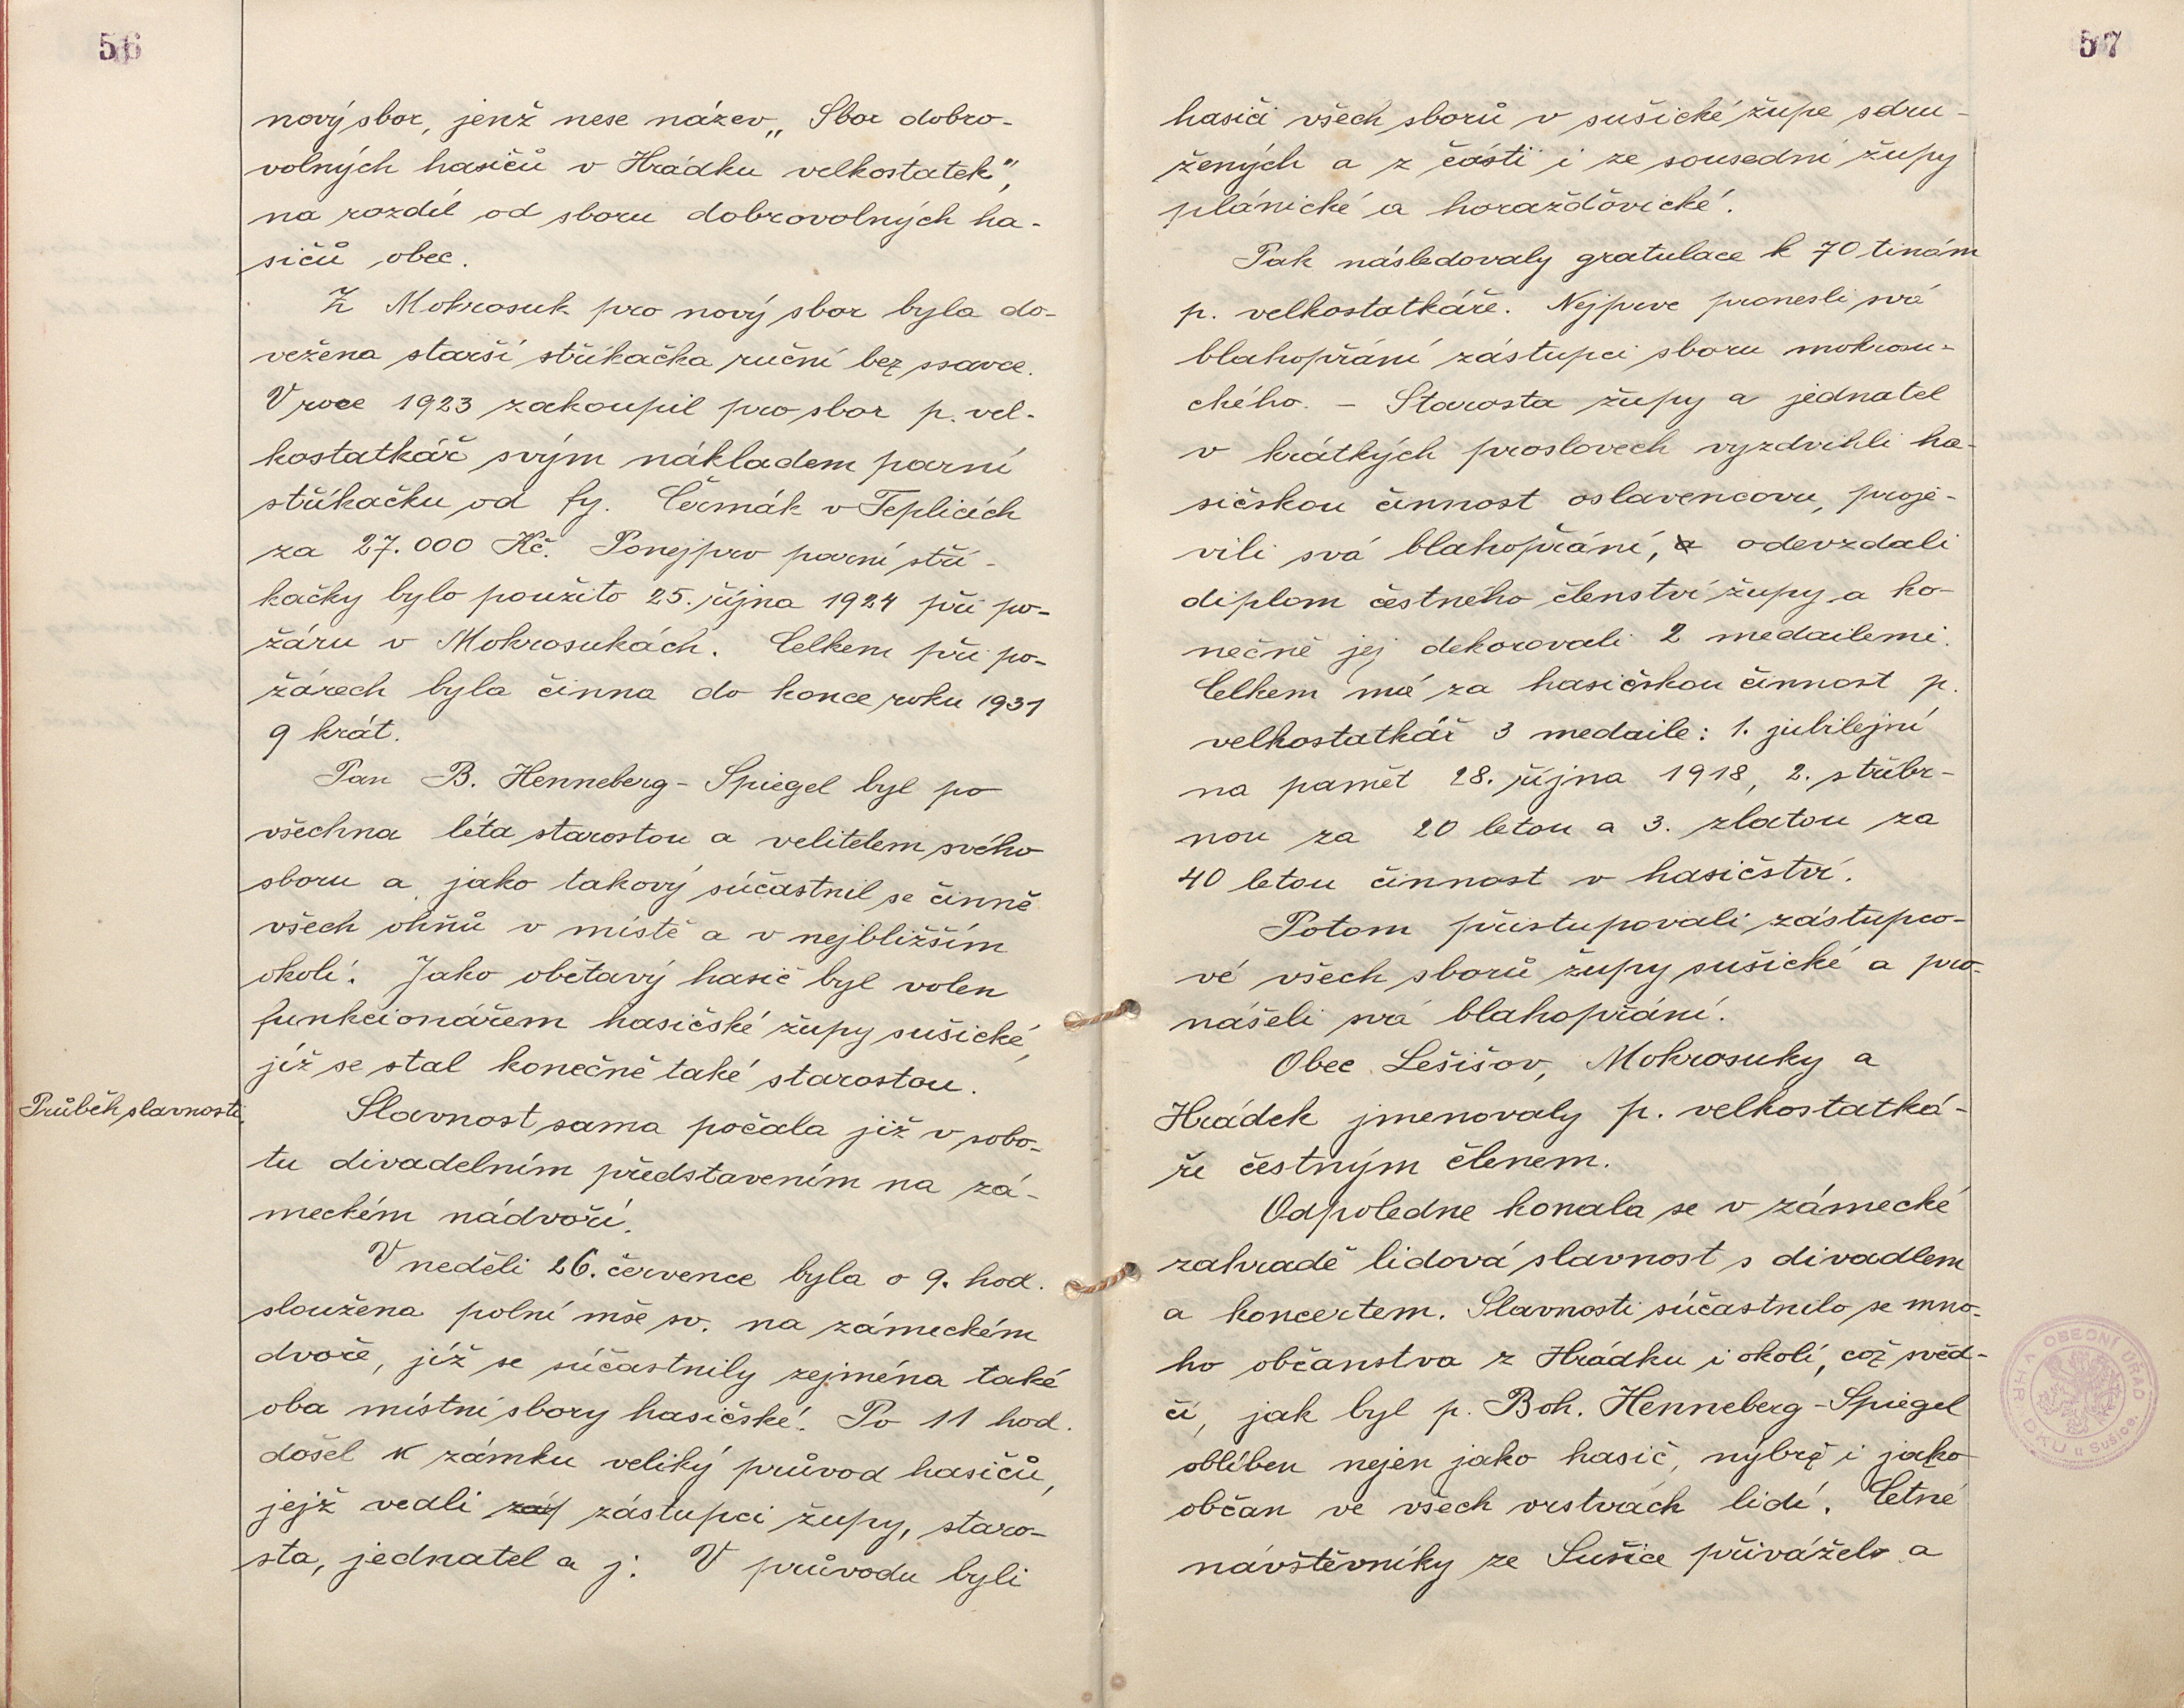 56
nový sbor, jenž nese název „Sbor dobro-
volných hasičů v Hrádku velkostatek",
na rozdíl od sboru dobrovolných ha-
sičů obec.
Z Mokrosuk pro nový sbor byla do-
vežena starší stříkačka ruční bez ssavce.
V roce 1923 zakoupil pro sbor p. vel-
kostatkář svým nákladem parní
stříkačku od fy. Čermák v Teplicích
za 27.000 Kč. Ponejprv parní stří-
kačky bylo použito 25. října 1924 při po-
žáru v Mokrosukách. Celkem při po-
žárech byla činna do konce roku 1931
9 krát.
Pan B. Henneberg-Spiegel byl po
všechna léta starostou a velitelem svého
sboru a jako takový súčastnil se činně
všech ohňů v místě a v nejbližším
okolí. Jako obětavý hasič byl volen
funkcionářem hasičské župy sušické,
jíž se stal konečně také starostou.
Průběh slavnosti.
Slavnost sama počala již v sobo-
tu divadelním představením na zá-
meckém nádvoří.
V neděli 26. července byla o 9. hod.
sloužena polní mše sv. na zámeckém
dvoře, jíž se súčastnily zejména také
oba místní sbory hasičské. Po 11 hod.
došel k zámku veliký průvod hasičů,
jejž vedli zástupci župy, staro-
sta, jednatel a j. V průvodu byli
57
hasiči všech sborů v sušické župe sdru-
žených a z části i ze sousední župy
plánické a horažďovické.
Pak následovaly gratulace k 70 tinám
p. velkostatkáře. Nejprve pronesli své
blahopřání zástupci sboru mokrosu-
ckého. – Starosta župy a jednatel
v krátkých proslovech vyzdvihli ha-
sičskou činnost oslavencovu, proje-
vili svá blahopřání, a odevzdali
diplom čestného členství župy a ko-
nečně jej dekorovali 2 medailemi.
Celkem má za hasičskou činnost p.
velkostatkář 3 medaile: 1. jubilejní
na pamět 28. října 1918, 2. stříbr-
nou za 20 letou a 3. zlatou za
40 letou činnost v hasičství.
Potom přistupovali zástupco-
vé všech sborů župy sušické a pro-
nášeli svá blahopřání.
Obec Lešišov, Mokrosuky a
Hrádek jmenovaly p. velkostatká-
ře čestným členem.
Odpoledne konala se v zámecké
zahradě lidová slavnost s divadlem
a koncertem. Slavnosti súčastnilo se mno-
ho občanstva z Hrádku i okolí, což svěd-
čí, jak byl p. Boh. Henneberg-Spiegel
oblíben nejen jako hasič, nýbrž i jako
občan ve všech vrstvách lidí. Četné
návštěvníky ze Sušice přivážela a
OBECNÍ ÚŘAD V HRÁDKU u Sušice.